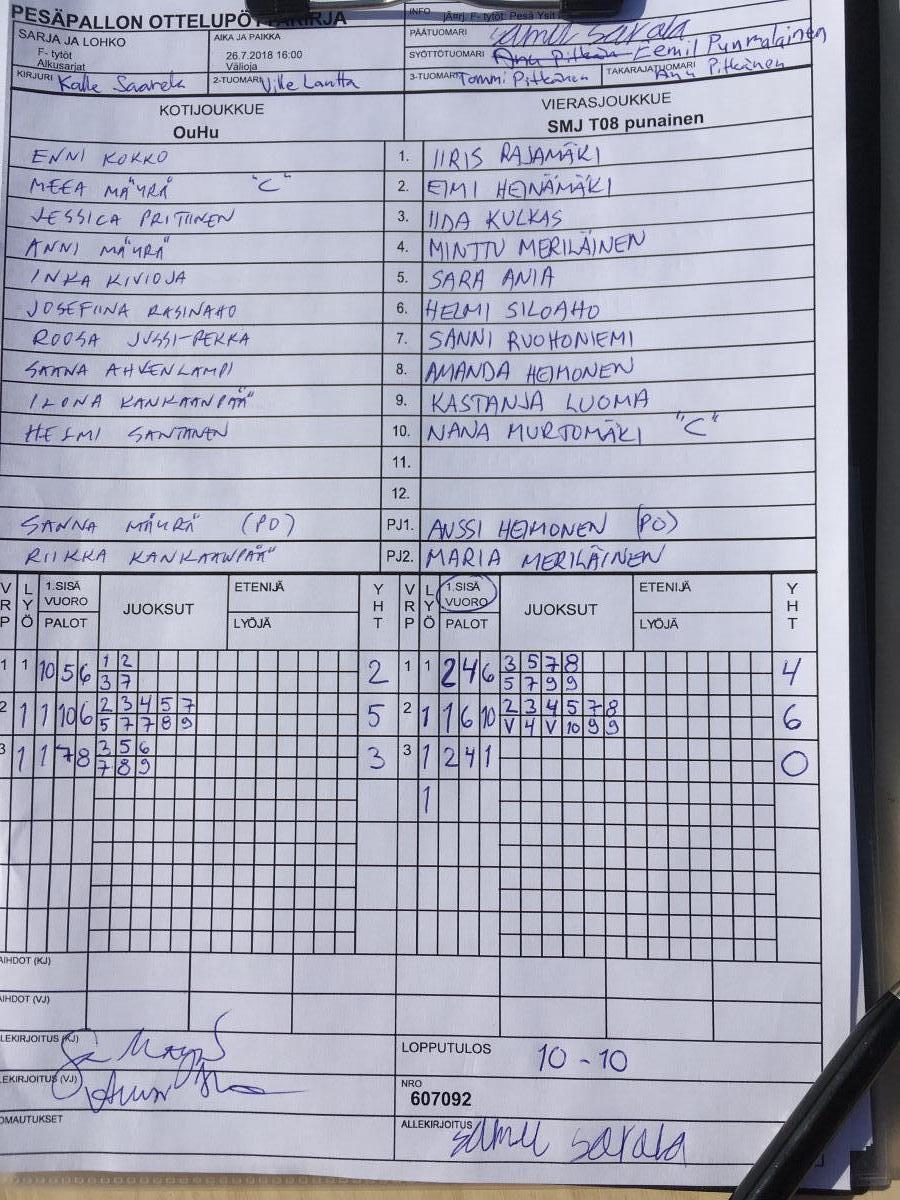 PESÄPALLON OTTELUPÖYTÄKIRJA
INFO
SARJA JA LOHKO
F- tytöt
Alkusarjat
AIKA JA PAIKKA
26.7.2018 16:00
Välioja
PÄÄTUOMARI Samu Sarala
SYÖTTÖTUOMARI
KIRJURI Kalle Saarela
2-TUOMARI Ville Lantta
3-TUOMARI Tommi Pitkänen
TAKARAJATUOMARI Anu Pitkänen
KOTIJOUKKUE
OuHu
VIERASJOUKKUE
SMJ T08 punainen
ENNI KOKKO 1. IIRIS RAJAMÄKI
MEEA MÄYRÄ "C" 2. EIMI HEINÄMÄKI
JESSICA PRITTINEN 3. IIDA KULKAS
ANNI MÄYRÄ 4. MINTTU MERILÄINEN
INKA KIVIOJA 5. SARA ANIA
JOSEFIINA RASINAHO 6. HELMI SILOAHO
ROOSA JUSSI-PEKKA 7. SANNI RUOHONIEMI
SAANA AHVENLAMPI 8. AMANDA HEIMONEN
ILONA KANKAANPÄÄ 9. KASTANJA LUOMA
HELMI SANTANEN 10. NANA MURTOMÄKI "C"
11.
12.
SANNA MÄYRÄ (PO) PJ1. ANSSI HEIMONEN (PO)
RIIKKA KANKAANPÄÄ PJ2. MARIA MERILÄINEN
VRP LYÖ 1.SISÄ VUORO PALOT JUOKSUT ETENIJÄ LYÖJÄ YHT VRP LYÖ 1.SISÄ VUORO PALOT JUOKSUT ETENIJÄ LYÖJÄ YHT
1 1 10 5 6 1 2 2 1 1 2 4 6 3 5 7 8 4
3 7 5 7 9 9
2 1 1 10 6 2 3 4 5 7 5 2 1 1 6 10 2 3 4 5 7 8 6
5 7 7 8 9 V 4 V 10 9 9
3 1 1 7 8 3 5 6 3 3 1 2 4 1 0
7 8 9
1
AIHDOT (KJ)
AIHDOT (VJ)
LEKIRJOITUS (KJ)
LOPPUTULOS 10 - 10
LEKIRJOITUS (VJ)
NRO
607092
OMAUTUKSET
ALLEKIRJOITUS Samu Sarala